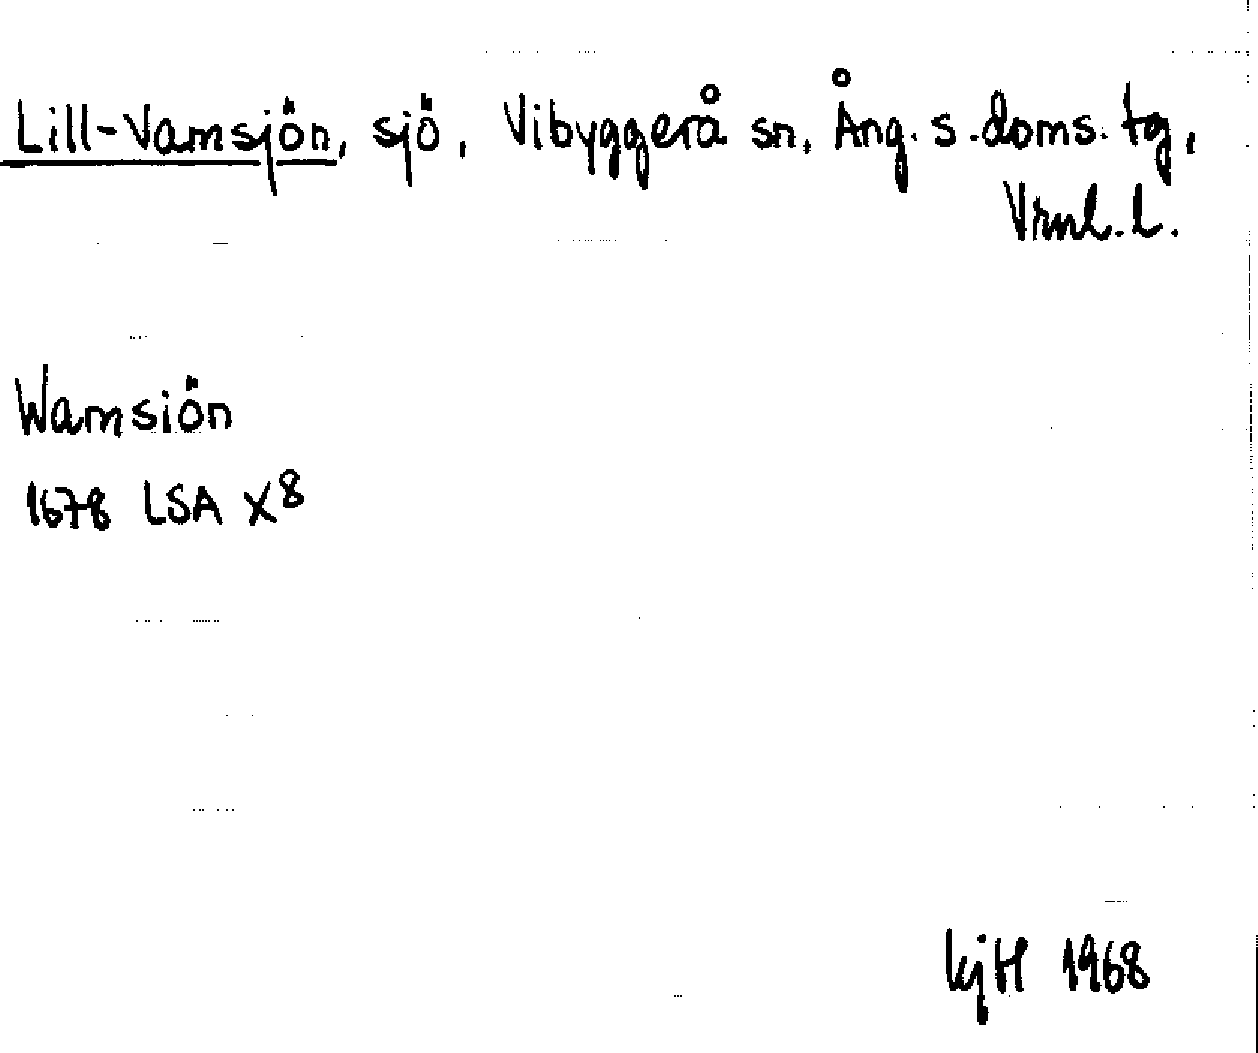 Lill-Vamsjön, sjö, Vibyggerå sn, Ång. s. doms. tg,
Vrnl. l.
Wamsiön
1678 LSA X8
kjH 1968